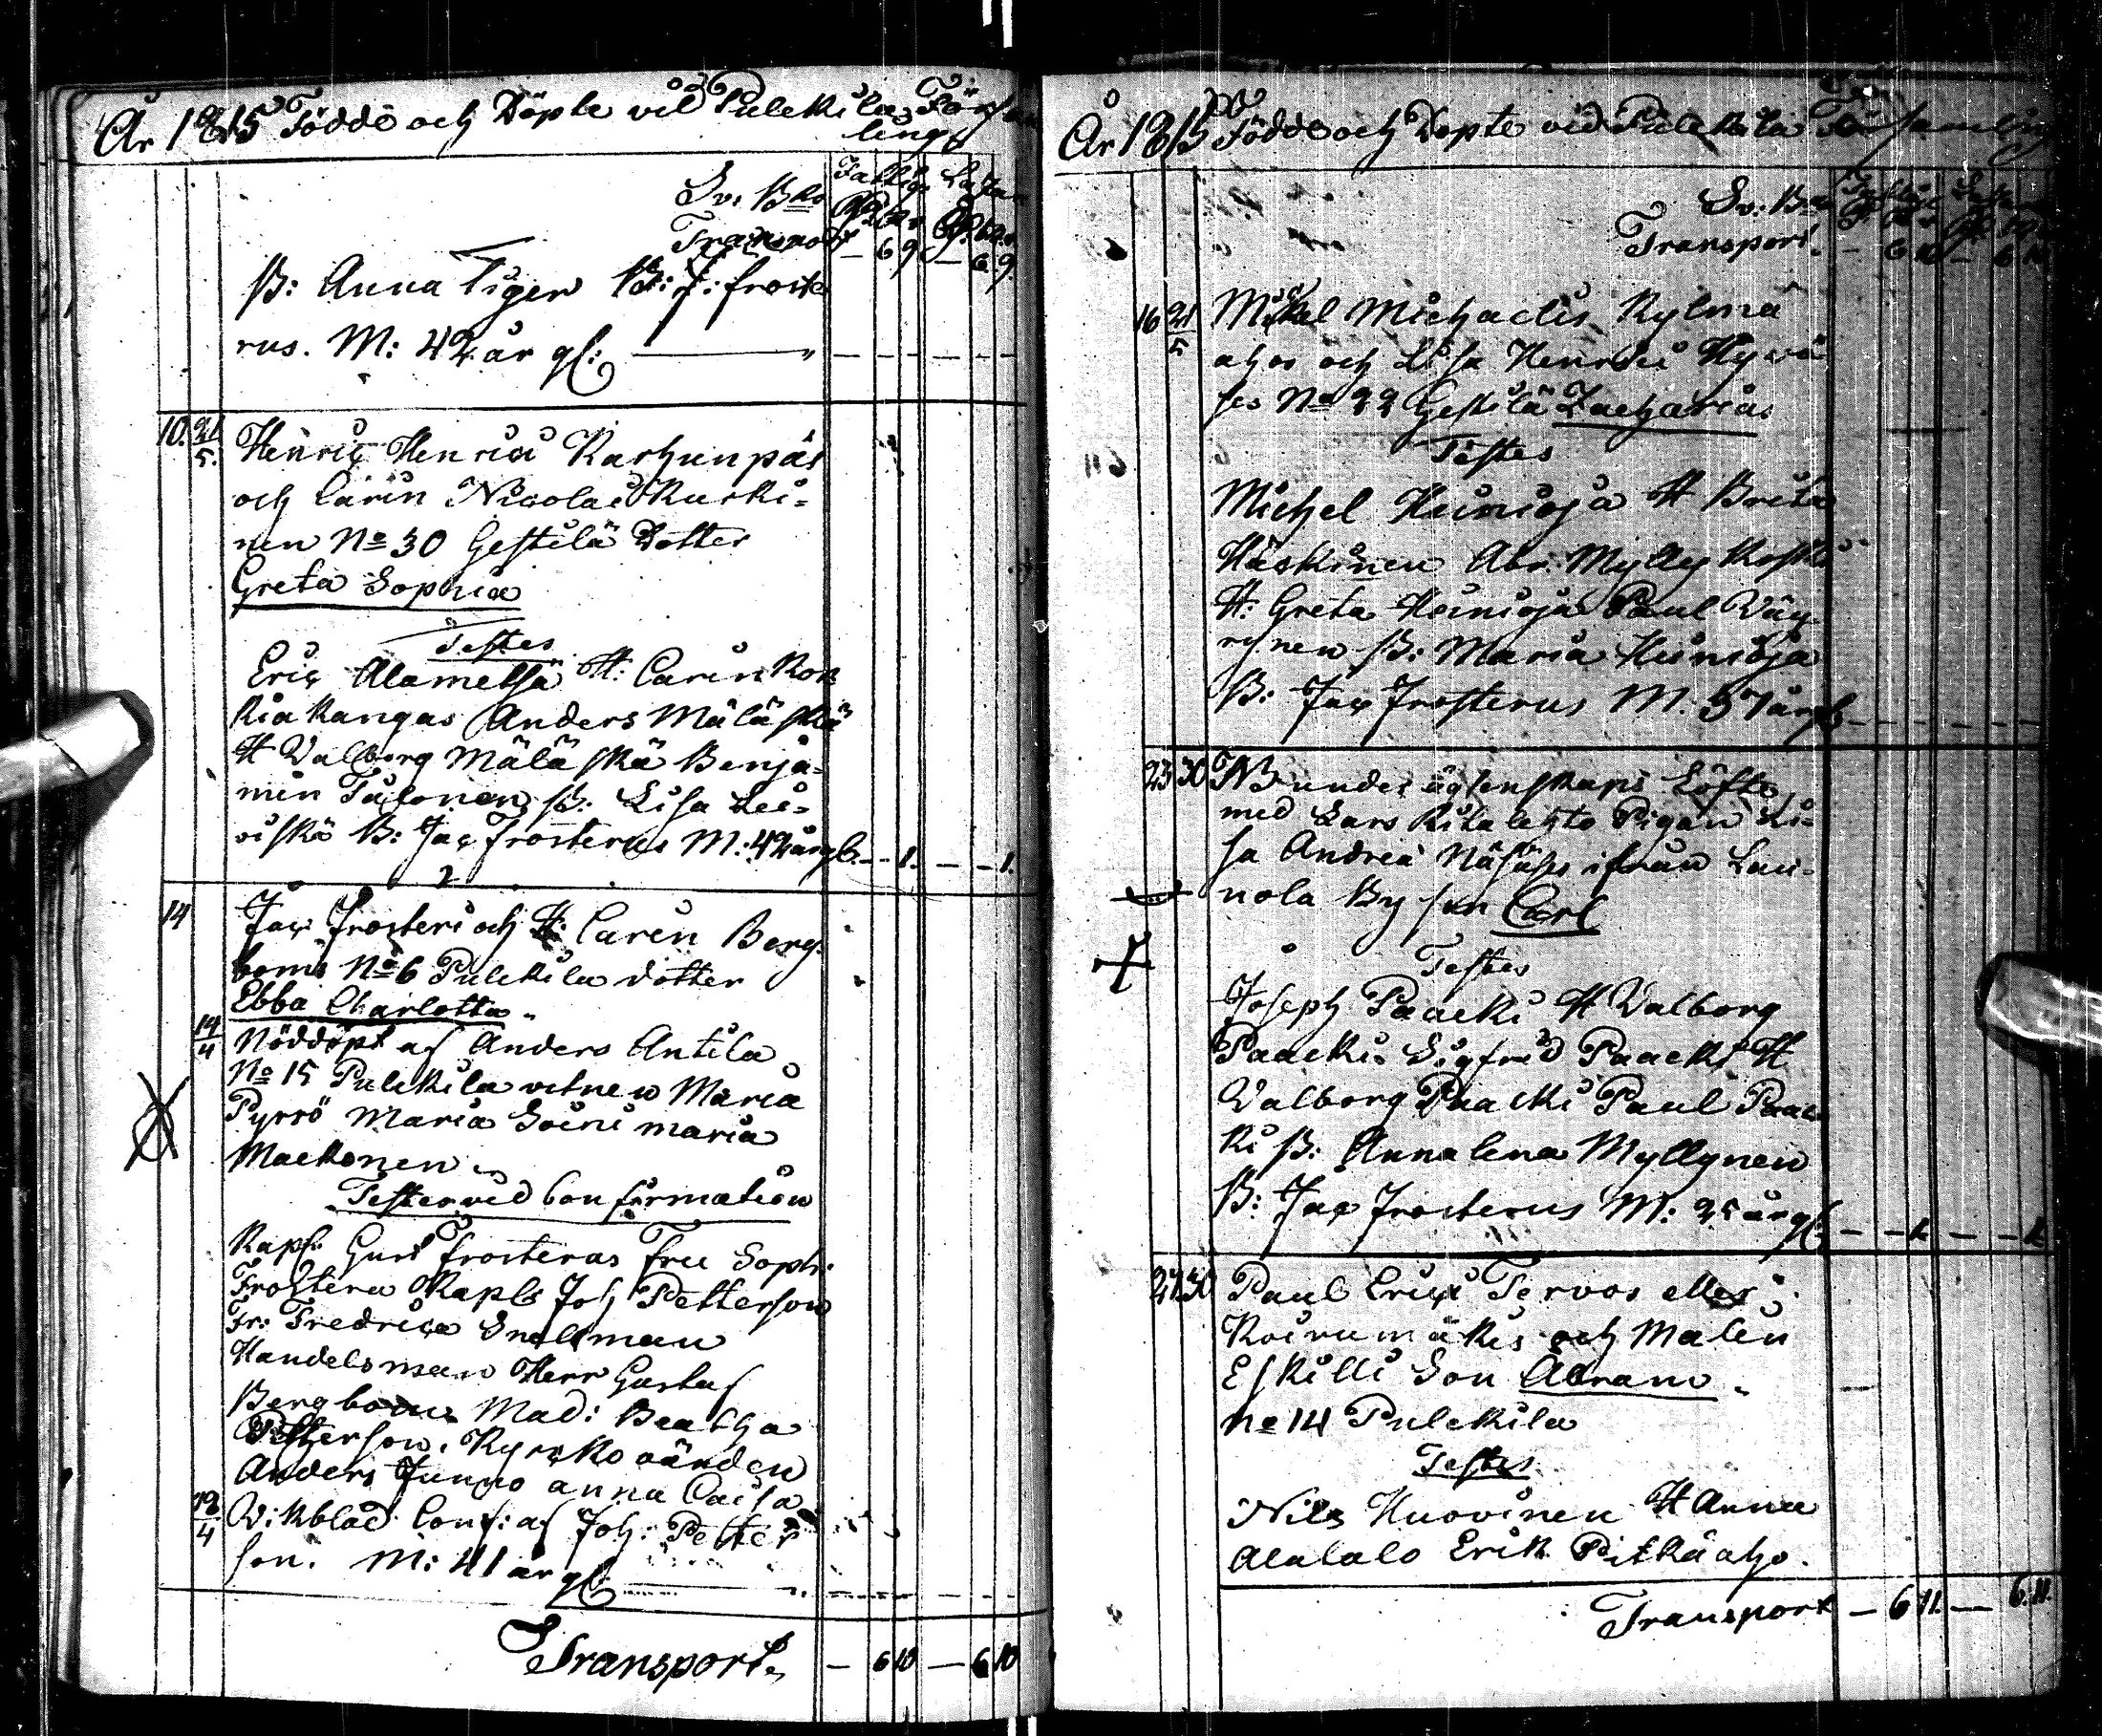 År 1815 Födde och Döpte vid Pulckila Försam
lings
Sv. Bco
Transport
Fattige
— 6 9 — 6 9.
B: Anna Tiger B: J: froste
rus. M: 42 år gl:
10. 21/5. Henric Henrici Karhunpäs
och Carin Nicolai Kurki=
nen No 30 Gestilä Dotter
Greta Sophia
Testes
Eric Alametsä H: Carin Kor
kiakangas Anders Mäläskä
H Valborg Mäläskä Benja=
min Tulonen B: Lisa Lei=
viskä B: Jac frosterus M: 42 år gl. — 1. — 1.
14 Jac Frosteri och H: Caren Berg
boms No 6 Pulckila dotter
Ebba Charlotta
14/4 Nöddöpt af Anders Antila
No 15 Pulckila vitnen Maria
Pyrrö Maria Soini maria
Mackonen
Testes vid Confirmation
Kapl: Gust frosteras Fru Soph:
Frostera Kapls Joh Petterson
Fr: Fredrica Snellman
Handelsman Herr Gustaf
Bergbom Mad: Beatha
Petterson. Kyrckovärden
Anders Junno anna Caisa
Vikblad Conf: af Joh: Petter
son. M: 41 år gl:
Transport — 6 10 — 6 10
År 1815 Födde och Döpte vid Pulckila Församling
Sv: Bco
Transport — 6 10 — 6 10
16 21/5 Mickel Michaelis Kylmä
ahos och Lisa Henrici Hyvä
ses No 22 Gestilä Zacharias
Testes
Michel Heinioja H Breta
Häskinen Abr. Myllykoski
H: Greta Heinioja Paul Väy
rynen B: Maria Heinioja
B: Jac Frosterus M. 37 år gl
23 30 NB under ägtenskaps Löfte
med Lars Ritalehto Pigan Li=
sa Andreæ Näsäses ifrån Lau=
nola By son Carl
Testes
Joseph Paacki H Valborg
Paacki Sigfrid Paacki H
Valborg Paacki Paul Paac
ki B: Annalena Myllynen
B: Jac Frosterus M: 25 år gl: — 1. — 1.
27 30 Paul Erici Tervos eller
Koirumäkis och Malin
Eskilli Son Abram
No 14 Pulckila
Testes
Nils Huovinen H Anna
Alatalo Erik Pitkäaho.
Transport — 6 11. — 6. 11.